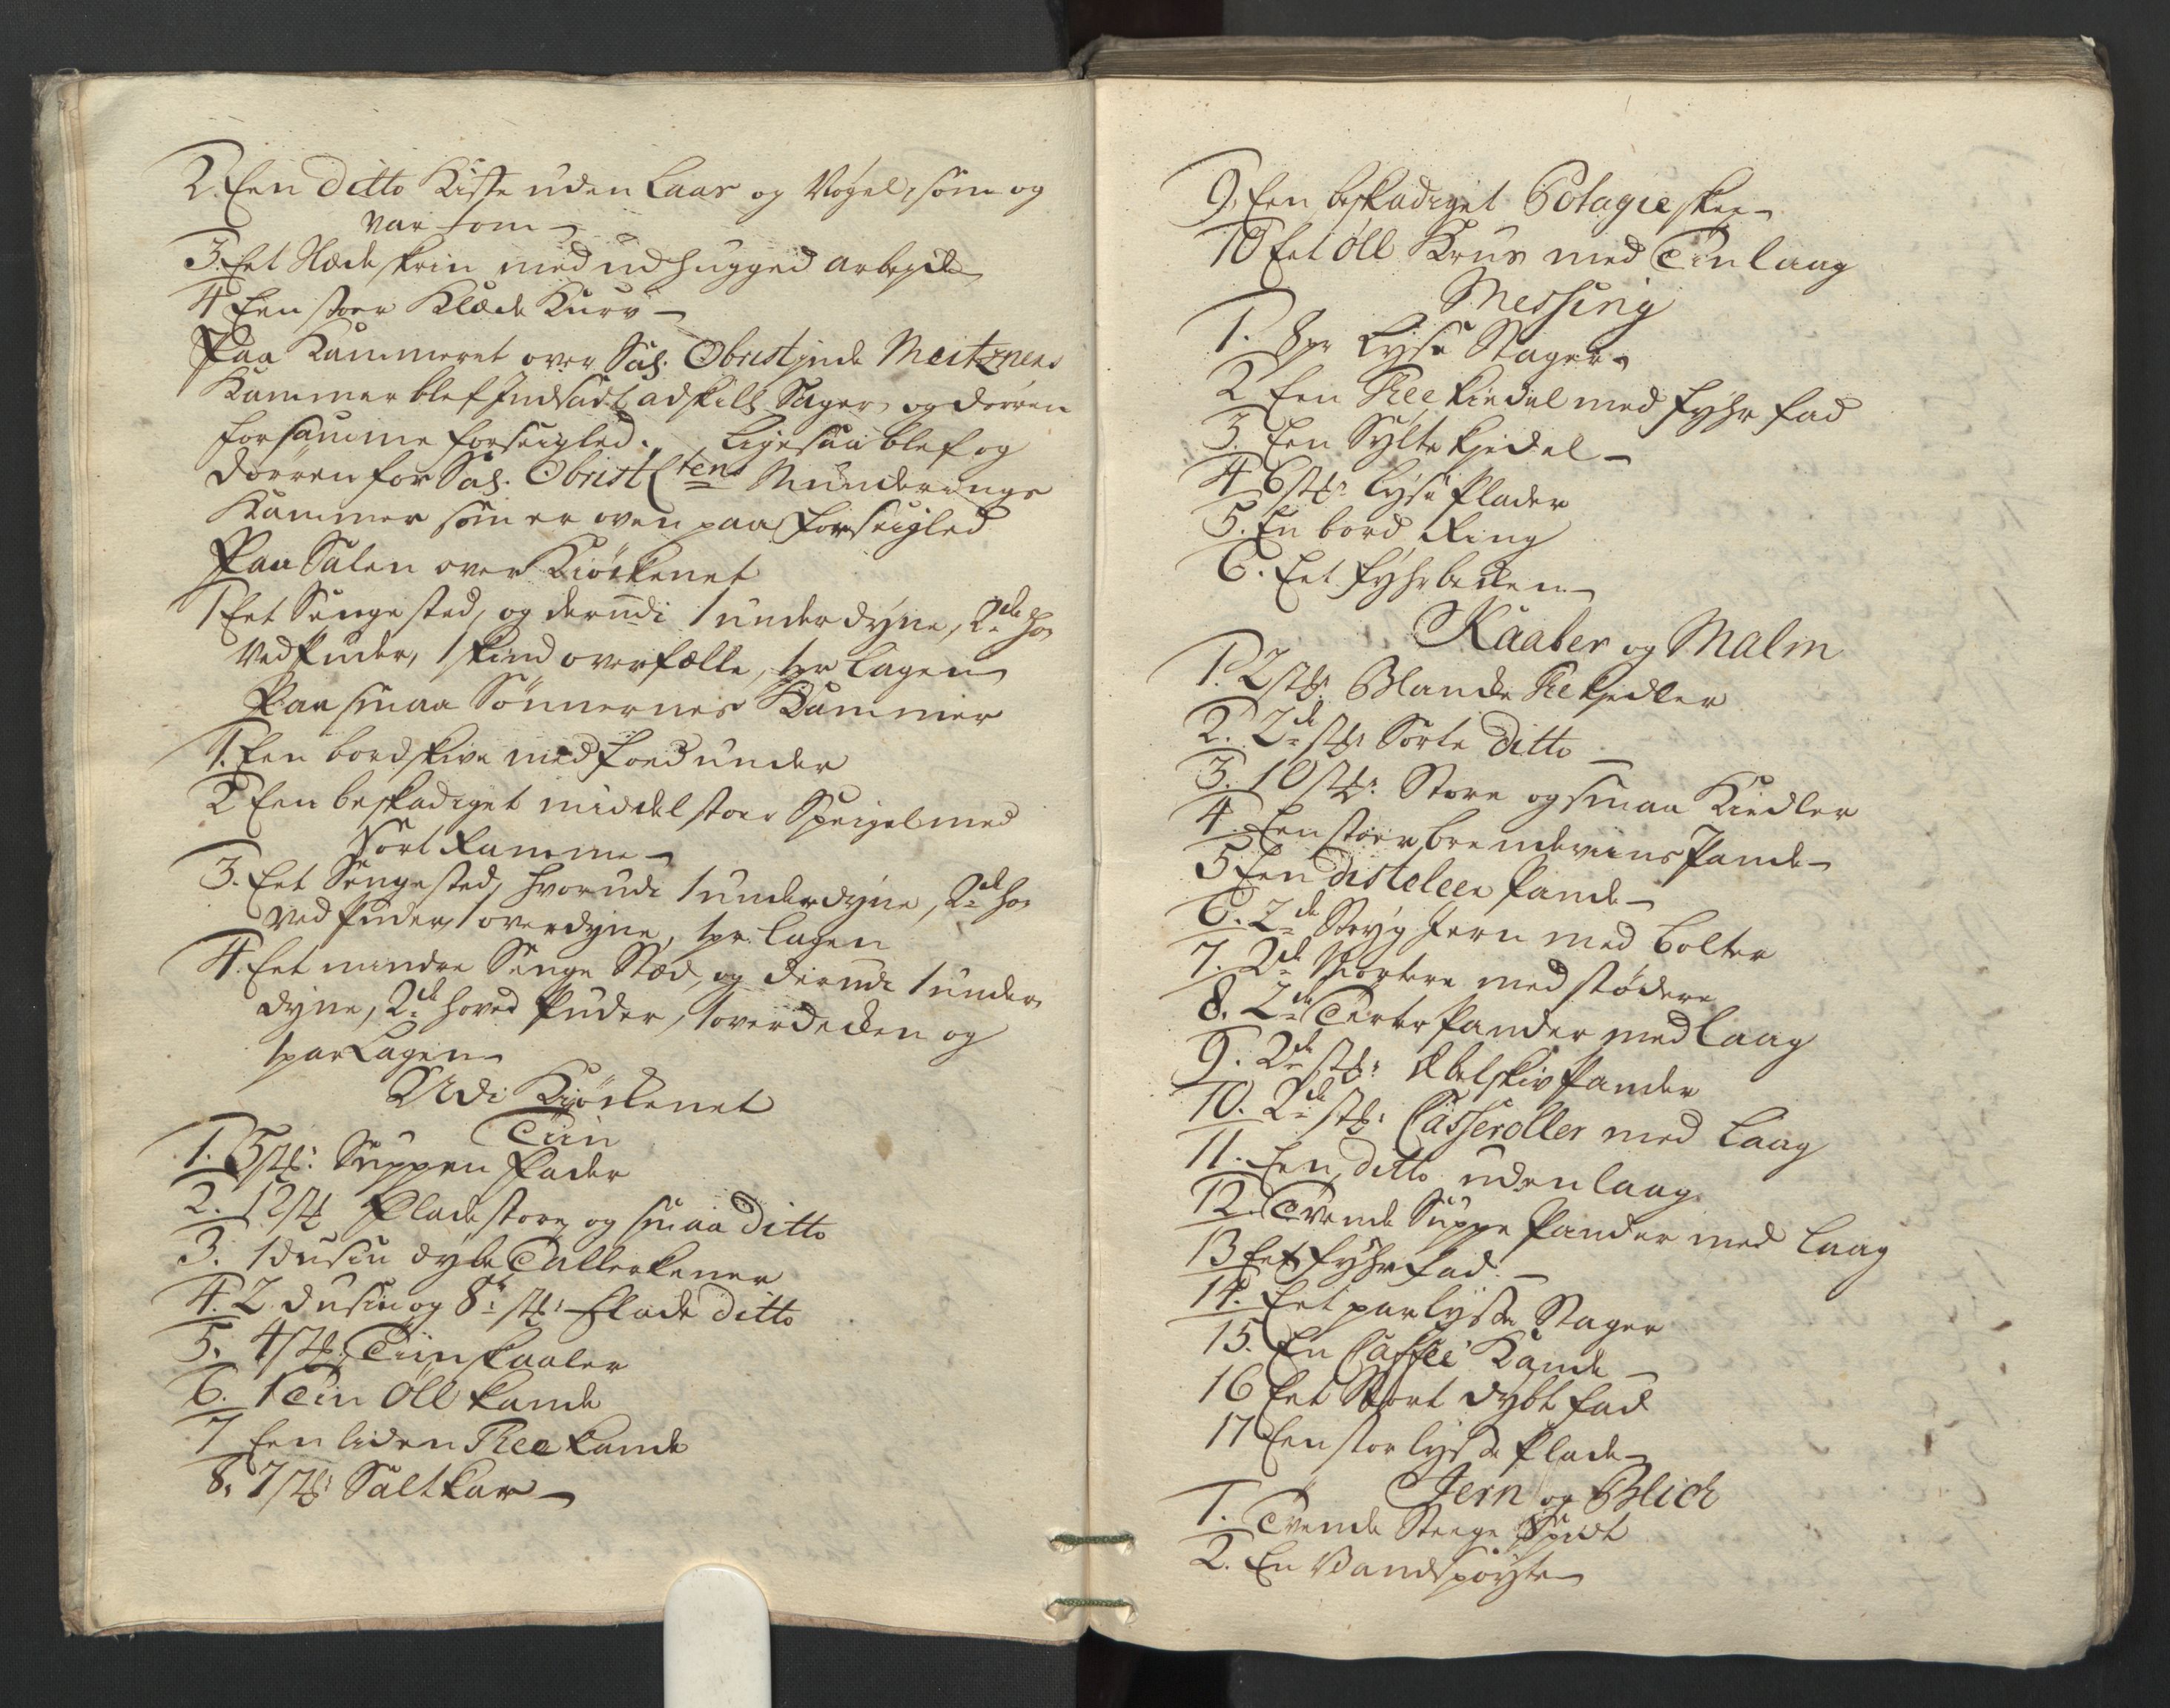 2. Een ditto Kiste uden Laas og Nøgel, som og
var tom
3. Eet Næde skrin med udhugged arbeyde
4 Een stoer Klæde Kurv
Paa Kammeret over Sal. Obristinde Meitzners
Kammer blef Indsadt adskill. Sager og dørren
for samme forseigled. Ligesaa blef og
dørren for Sal. Obristl^tens Munderings
Kammer som er oven paa forseigled
Paa Salen over Kiøckenet
1 Eet Sengested, og derudi 1 underdyne, 2de Ho-
vedpuder, 1 skind overfælle, 1 pr Lagen
Paa smaa Sønnernes Kammer
1. Een bordskive med foed under
2 Een beskadiget middel stoer Speigel med
Sort Ramme
3. Eet Sengested, hvorudi 1 underdyne, 2de Ho-
ved puder, 1 overdyne, 1 pr. Lagen
4. Eet mindre Senge Sted, og derudi 1 under
dyne, 2de Hoved Puder, 1 overdecken og
1 par Lagen
Udi Kiøckenet
Tiin
1. 5 st: Suppen Fader
2. 12 st Flade store og smaa ditto
3. 1 dusin dybe Tallerkener
4. 2 dusin og 8te st: Flade ditto
5. 4 st: Tiin skaaler
6. 1 Tin Öll kande
7 Een liden Thee kande
8. 7 st: Saltkar
9. Een beskadiget Potagie skee
10 Eet öll Krus med Tin laag
Messing
1. 8 pr Lyse Stager
2 Een Thee kiedel med fyhr fad
3. Een Sylte kjedel
4 6 st: Lyse Plader
5. En bord Ring
6. Eet fyhrbecken
Kaaber og Malm
1. 2 st: Blancke Thekjedler
2. 2de st: Sorte ditto
3. 10 st: Store og smaa Kiedler
4. Een stoer brendeviins Pande
5 Een disteleer Pande
6. 2de Stryg Jern med bolter
7. 2de Mortere med stødere
8. 2de Terte Pander med Laag
9. 2de st: Æbelskiv Pander
10. 2de st: Casseroller med Laag
11. Een ditto uden laag
12. Tvende Suppe Pander med Laag
13 Eet fyhrfad
14. Eet par lyse Stager
15. En Caffee Kande
16 Eet Stort dybt fad
17 Een stor lyse Plade
Jern og Blick
1. Tvende Steege Spidt
2. En Vandspøyte